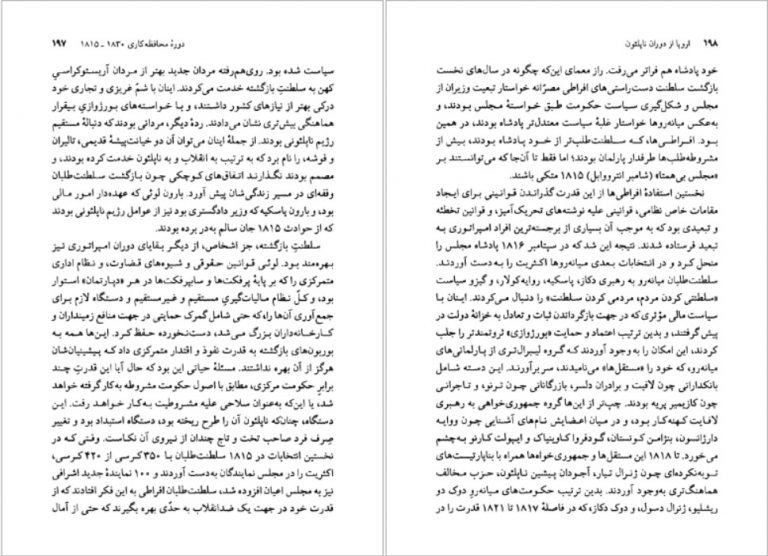 دورهٔ محافظه‌کاری ۱۸۳۰ ـ ۱۸۱۵ ۱۹۷
سیاست شده بود. روی‌هم‌رفته مردان جدید بهتر از مردان آریستوکراسیِ
کهن به سلطنتِ بازگشته خدمت می‌کردند. اینان با شمّ غریزی و تجاری خود
درکی بهتر از نیازهای کشور داشتند، و با خواسته‌های بورژوازیِ بیقرار
هماهنگی بیش‌تری نشان می‌دادند. ردهٔ دیگر، مردانی بودند که دنبالهٔ مستقیم
رژیم ناپلئونی بودند. از جملهٔ اینان می‌توان آن دو خیانت‌پیشهٔ قدیمی، تالیران
و فوشه، را نام برد که به ترتیب به انقلاب و به ناپلئون خدمت کرده بودند، و
مصمم بودند نگذارند اتفاق‌های کوچکی چون بازگشت سلطنت‌طلبان
وقفه‌ای در مسیر زندگی‌شان پیش آورد. بارون لوئی که عهده‌دار امور مالی
بود، و بارون پاسکیه که وزیر دادگستری بود نیز از عوامل رژیم ناپلئونی بودند
که از حوادث ۱۸۱۵ جان سالم به‌در برده بودند.
سلطنتِ بازگشته، جز اشخاص، از دیگر بقایای دوران امپراتوری نیز
بهره‌مند بود. لوئی قوانین حقوقی و شیوه‌های قضاوت، و نظام اداری
متمرکزی را که بر پایهٔ پرفکت‌ها و ساپرفکت‌ها در هر «دپارتمان» استوار
بود، و کلّ نظام مالیات‌گیریِ مستقیم و غیرمستقیم و دستگاه لازم برای
جمع‌آوری آن‌ها را‌که حتی شامل گمرک حمایتی در جهت منافع زمینداران و
کارخانه‌داران بزرگ می‌شد، دست‌نخورده حفظ کرد. این‌ها همه به
بوربون‌های بازگشته به قدرت نفوذ و اقتدار متمرکزی داد که پیشینیان‌شان
هرگز از آن بهره نداشتند. مسئلهٔ حیاتی این بود که حال آیا این قدرتِ چند
برابرِ حکومت مرکزی، مطابق با اصول حکومت مشروطه به‌کار گرفته خواهد
شد، یا این‌که به‌عنوان سلاحی علیه مشروطیت به‌کار خواهد رفت. این
دستگاه، چنان‌که ناپلئون آن را طرح ریخته بود، دستگاه استبداد بود و تغییر
صِرف فرد صاحب تخت و تاج چندان از نیروی آن نکاست. وقتی که در
نخستین انتخابات در ۱۸۱۵ سلطنت‌طلبان با ۳۵۰ کرسی از ۴۲۰ کرسی،
اکثریت را در مجلس نمایندگان به‌دست آوردند و ۱۰۰ نمایندهٔ جدید اشرافی
نیز به مجلس اعیان افزوده شد، سلطنت‌طلبان افراطی به این فکر افتادند که از
قدرت خود در جهت یک ضدانقلاب به حدّی بهره بگیرند که حتی از آمال
۱۹۸ اروپا از دوران ناپلئون
خود پادشاه هم فراتر می‌رفت. راز معمای این‌که چگونه در سال‌های نخست
بازگشت سلطنت دست‌راستی‌های افراطی مصرّانه خواستار تبعیت وزیران از
مجلس و شکل‌گیری سیاست حکومت طبق خواستهٔ مجلس بودند، و
به‌عکس میانه‌روها خواستار غلبهٔ سیاست معتدل‌تر پادشاه بودند، در همین
بود. افراطی‌ها، که سلطنت‌طلب‌تر از خود پادشاه بودند، بیش از
مشروطه‌طلب‌ها طرفدار پارلمان بودند؛ اما فقط تا آن‌جا که می‌توانستند بر
«مجلس بی‌همتا» (شامبر انترووابل) ۱۸۱۵ متکی باشند.
نخستین استفادهٔ افراطی‌ها از این قدرت گذراندن قوانینی برای ایجاد
مقامات خاص نظامی، قوانینی علیه نوشته‌های تحریک‌آمیز، و قوانین تخطئه
و تبعیدی بود که به موجب آن بسیاری از برجسته‌ترین افراد امپراتوری به
تبعید فرستاده شدند. نتیجه این شد که در سپتامبر ۱۸۱۶ پادشاه مجلس را
منحل کرد و در انتخابات بعدی میانه‌روها اکثریت را به دست آوردند.
سلطنت‌طلبان میانه‌رو به رهبری دکاز، پاسکیه، روایه‌کولار، و گیزو سیاست
«سلطنتی کردن مردم، مردمی کردن سلطنت» را دنبال می‌کردند. اینان با
سیاست مالی مؤثری که در جهت بازگرداندن ثبات و تعادل به خزانهٔ دولت در
پیش گرفتند، و بدین ترتیب اعتماد و حمایت «بورژوازی» ثروتمندتر را جلب
کردند، این امکان را به وجود آوردند که گروه لیبرال‌تری از پارلمانی‌های
میانه‌رو، که خود را «مستقل‌ها» می‌نامیدند، سر برآورند. این دسته شامل
بانکدارانی چون لافیت و برادران دلسر، بازرگانانی چون ترنو، و تاجرانی
چون کازیمیر پریه بودند. چپ‌تر از این‌ها گروه جمهوری‌خواهی به رهبری
لافایت کهنه‌کار بود، و در میان اعضایش نام‌های آشنایی چون ووایه
دارژانسون، بنژامن کونستان، گودفروا کاونیاک و ایپولت کارنو به‌چشم
می‌خورد. تا ۱۸۱۸ این مستقل‌ها و جمهوری‌خواه‌ها همراه با بناپارتیست‌های
توبه‌نکرده‌ای چون ژنرال تیار، آجودان پیشین ناپلئون، حزب مخالف
هماهنگ‌تری به‌وجود آوردند. بدین ترتیب حکومت‌های میانه‌روِ دوک دو
ریشلیو، ژنرال دسول، و دوک دکاز، که در فاصلهٔ ۱۸۱۷ تا ۱۸۲۱ قدرت را در